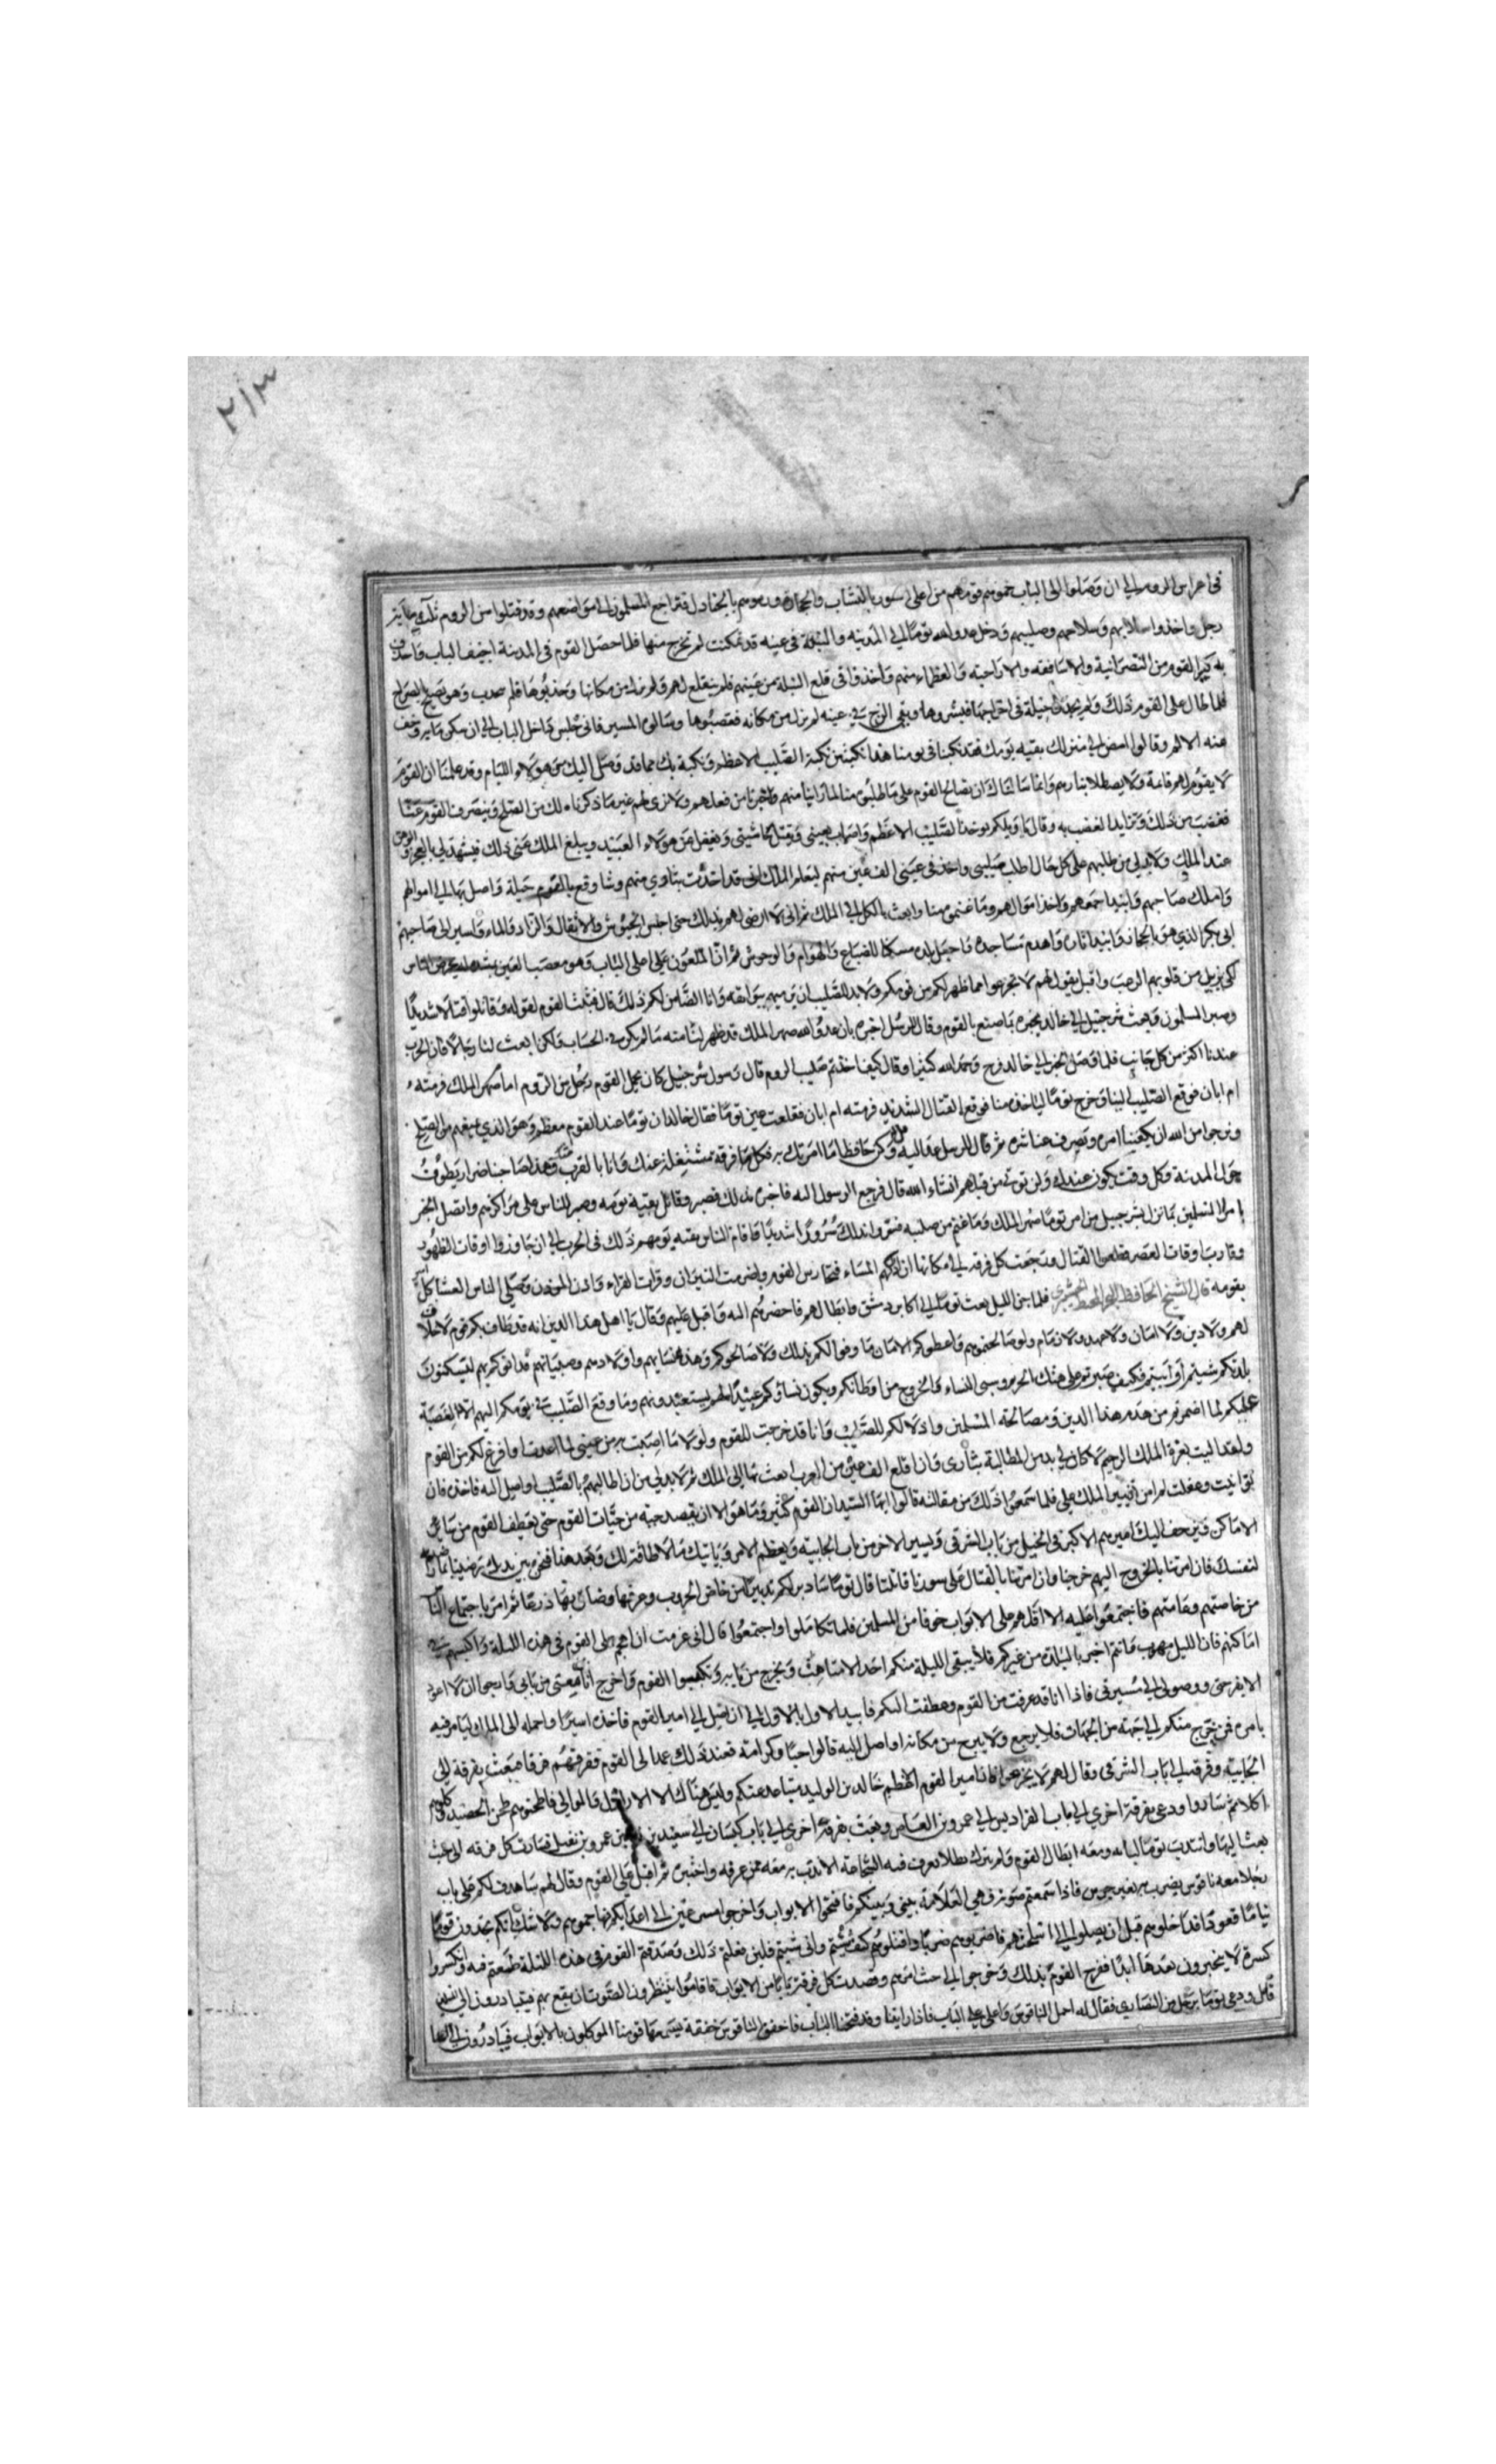 ٢١٣
في اعراس الروم الى ان وصلوا الى الباب حموهم قومهم من اعلى السور بالنشاب والحجارة ورموهم بالجنادل فتراجع المسلمون الى مواضعهم وقد قتلوا من الروم ثلثمايه
رجل واخذوا اسلابهم وسلاحهم وصليبهم ودخل عدو الله توما الى المدينه والنبلة في عينه قد تمكنت لم تخرج منها فلما حصل القوم في المدينة اجيف الباب فاحدق
به كبرا القوم من النصرانية والاساقفه والاراحبته والعظماء منهم واخذوا في قلع النبلة من عينهم فلم ينقلع لهم ولم تزل من مكانها وجذبوها فلم تنجذب وهو يصيح الصراخ
فلما طال على القوم ذلك ولم يجدوا حيلة في اخراجها فنشروها وبقي الزج في عينه لم يزل من مكانه فعصبوها وسالوه المسير فابى وجلس داخل الباب الى ان سكن ما به وخف
عنه الالم وقالوا امض الى منزلك بقيه يومك فقد نكبنا في يومنا هذا نكبتين نكبة الصليب الاعظم ونكبة بك مما قد وصل اليك من هولاء اللئام وقد علمنا ان القوم
لا يقوم لهم قائمة ولا يصطلا بنارهم وانا سالناك ان نصالح القوم على ما طلبوه منا لما راينا منهم واختبرنا من فعلهم ولا نرى لهم غير ما ذكرناه لك من الصلح وينصرف القوم عنا
فغضب من ذلك وتزايد الغضب به وقال يا ويلكم يوخذ الصليب الاعظم واصاب بعيني وتقتل حاشيتي ونغفل عن هولاء العبيد ويبلغ الملك عني ذلك فيشهد لي بالعجز والوهن
عند الملك ولا بد لي من طلبهم على كل حال اطلب صليبي واخذ في عيني الف عين منهم ليعلم الملك اني قد اخذت بثاري منهم وسا وقع بالقوم حيلة واصل بها الى اموالهم
واملك صاحبهم وابيد جمعهم واخذ اموالهم وما غنموه منا وابعث بالكل الى الملك ثم اني لا ارضى لهم بذلك حتى اجلس الجيوش والاثقال والزاد والماء واسير الى صاحبهم
ابي بكر الذي هو بالحجاز وابيد اثاره واهدم مساجده واجعل بلده مسكنا للضباع والهوام والوحوش ثم ان الملعون علي اعلى الباب وهو معصب العين يشده ليحرض الناس
لكي يزيل من قلوبهم الرعب واقبل يقول لهم لا تجزعوا مما ظهر لكم من قومكم ولا بد للصليب ان يرميهم ببوايقه وانا الضامن لكم ذلك قال فثبت القوم لقوله وقاتلوا قتالا شديدا
وصبر المسلمون وبعث شرحبيل الى خالد يخبره بما صنع بالقوم وقال الرسل اخبره بان عدو الله صهر الملك قد ظهر لنا منه ما لم يكن في الحساب ولكن ابعث لنا رجالا فان الحرب
عندنا اكثر من كل جانب فلما وصل الخبر الى خالد فرح وحمد الله كثيرا وقال كيف اخذتم صليب الروم قال رسول شرحبيل كان يحمله القوم رجل من الروم امام صهر الملك فرمته
ام ابان فوقع الصليب الينا وخرج توما لياخذه منا فوقع القتال الشديد فرمته ام ابان فقلعت عين توما فقال خالد ان توما عند القوم معظم وهو الذي يمنعهم من الصلح
ونرجوا من الله ان يكفينا امره ويصرف عنا شره ثم قال للرسل عد اليه وقل له وكن حافظا ما امرتك به فكل فرقة مشتغلة عنك وانا بالقرب منك وهذا صاحبنا ضرار يطوف
حول المدينة وكل وقت يكون عندك ولن توتى من قبلهم انشاء الله قال فرجع الرسول اليه فاخبره بذلك فصبر وقاتل بقية يومه وصبر الناس على مراكزهم واتصل الخبر
بامرا المسلمين بما نزل بشرحبيل من امر توما صهر الملك وما غنم من صليبه فسروا بذلك سرورا شديدا فاقام الناس بقية يومهم ذلك في الحرب الى ان جاوزوا اوقات الظهر
وقارب اوقات العصر فقطعوا القتال ورجعت كل فرقه الى مكانها ان اتاهم المساء فتحارس القوم واضرمت النيران وقرات القراء واذن الموذن وصلى الناس العشا كل امير
بقومه قال الشيخ الحافظ فلما جن الليل بعث توما الى اكابر دمشق وابطالهم فاحضرهم اليه واقبل عليهم وقال يا اهل هذا الدين انه قد طاف بكم قوم لا خلاق
لهم ولا دين ولا امان ولا عهد ولا ذمام ولو صالحتموهم واعطوكم الامان ما وفوا لكم بذلك ولا صالحوكم وهذه نسايهم واولادهم وصبيانهم قد اتو كم بهم ليسكنون
بلدتكم شيتم او ابيتم فكيف صبرتم على هتك الحريم وسبي النساء والخروج من اوطانكم ويكون نساؤكم عبيدا لهم يستعبدونهم وما وقع الصليب في يومكم اليهم الا غضبة
عليكم لما اضمرتم من هدم هذا الدين ومصالحة المسلمين واذلالكم للصليب وانا قد خرجت للقوم ولو لا ما اصبت به من عيني لما عدت او افرغ لكم من القوم
ولقد اليت بعزة الملك الرحيم لا كان لي بد من المطالبة بثاري وان اقلع الف عين من العرب ابعث بها الى الملك ثم لا بد لي من ان اطالبهم بالصليب واصل اليه فاخذه فان
توانيت وغفلت لم امن تغيير الملك علي فلما سمعوا ذلك من مقالته قالوا ايها السيد ان القوم كثير وما هو الا ان يقصد جهة من جهات القوم حتى يعطف القوم من ساير
الاماكن ويزحف اليك اميرهم الاكبر في الخيل من باب الشرقي ويسير الاخر من باب الجابيه ويعظم الامر وياتيك ما لا طاقة لك وبعد هذا فنحن بين يديك رضينا بما رضيته
لنفسك فان امرتنا بالخروج اليهم خرجنا وان امرتنا بالقتال على سورنا قاتلنا قال توما سادبر لكم تدبيرا من خاض الحروب وعرفها وضاق بها ذرعا ثم امر باجتماع الناس
من خاصتهم وعامتهم فاجتمعوا عليه الا اقلهم على الابواب خوفا من المسلمين فلما تكاملوا واجتمعوا قال اني عزمت ان اهجم على القوم في هذه الليلة واكبسهم في
اماكنهم فان الليل مهوب وانتم اخبر بالبلدة من غيركم فلا يبقى الليلة منكم احد الا متاهب ويخرج من بابه وتكبسوا القوم واخرج انا بمن معي من بابي وارجوا ان لا اعود
الا بفرحتي ووصولي الى مسيرتي فاذا انا قد عرفت من القوم وعطفت اليكم فابيد الاول بالاول الى ان اصل الى امير القوم فاخذه اسيرا واحمله الى الملك ليامر فيه
بامره فمن يخرج منكم الى جهة من الجهات فلا يرجع ولا يبرح من مكانه او اصل اليه قالوا حبا وكرامة فعند ذلك عمد الى القوم ففرقهم فرقا فبعث بفرقة الى
الجابية وفرقة الى باب الشرقي وقال لهم لا تجزعوا فان امير القوم الاعظم خالد بن الوليد متباعد عنكم وليس هناك الا الاراذل والموالي فاطحنوهم طحن الحصيد وكلوهم
اكلا ثم ساروا ودعى بفرقة اخرى الى باب الفراديس الى عمرو بن العاص وبعث بفرقة اخرى الى باب كيسان الى سعيد بن زيد بن عمرو بن نفيل فسارت كل فرقه الى حيث
بعث اليها وانتدب توما لبابه ومعه ابطال القوم ولم يترك بطلا يعرف فيه الشجاعة الا ندب به معه ممن عرفه واختبره ثم اقبل على القوم وقال لهم ساهدف لكم على باب
رجلا معه ناقوس يضرب به بغير جرس فاذا سمعتم صوته فهي العلامة بيني وبينكم فافتحوا الابواب واخرجوا مسرعين الى اعدايكم فهاجموهم ولا شك انكم تجدون قوما
نياما قعودا فداخلوهم قبل ان يصلوا الى اسلحتهم فاضربوهم ضربا واقتلوهم كيف شيتم واني شيتم فلين فعلتم ذلك وصدقتم القوم في هذه الليلة طمعتم فيه وانكسروا
كسرة لا ينجبرون بعدها ابدا ففرح القوم بذلك وخرجوا الى حيث امرهم وقصدت كل فرقة بابا من الابواب فاقاموا ينتظرون الصوت ان يقع بهم فيبادرون الى المسلمين
قال ودعى توما برجل من النصارى فقال له احمل الناقوس واعلى على الباب فاذا رايتنا وقد فتحنا الباب فاخفق الناقوس خفقة يسمعها قومنا الموكلون بالابواب فيبادرون الى القتال